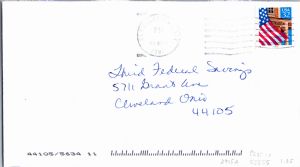 USA
32
Third Federal Savings
5711 Grant Ave
Cleveland Ohio
44105
44105/5634 11